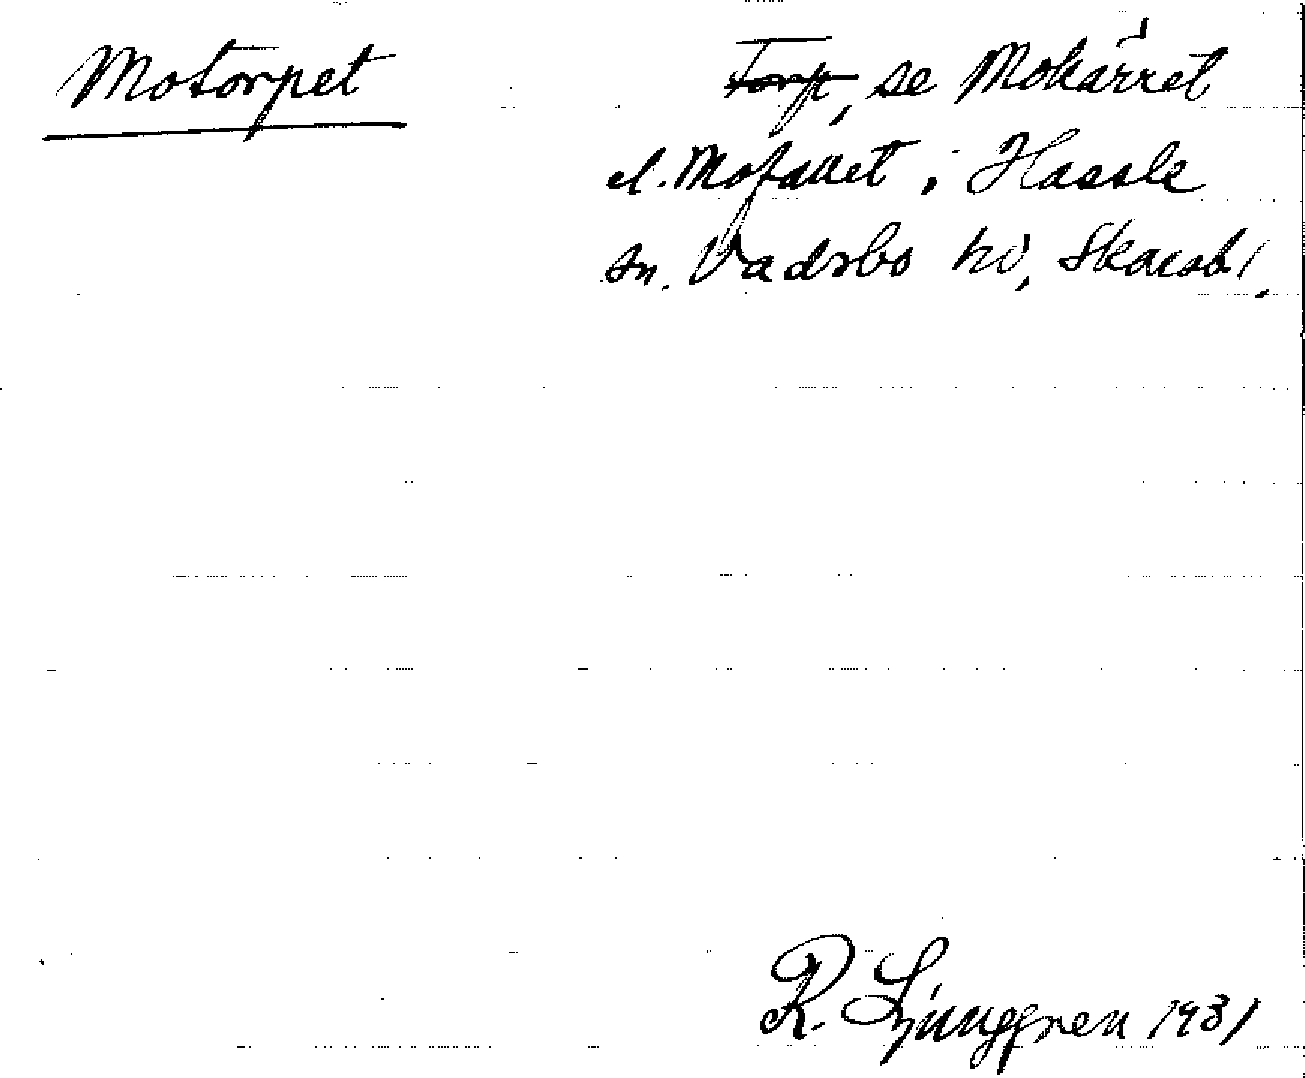 Motorpet
Torp, se Mokärret
el. Mofallet i Hassle
sn. Vadsbo hd, Skarab.l.
R. Ljunggren 1931